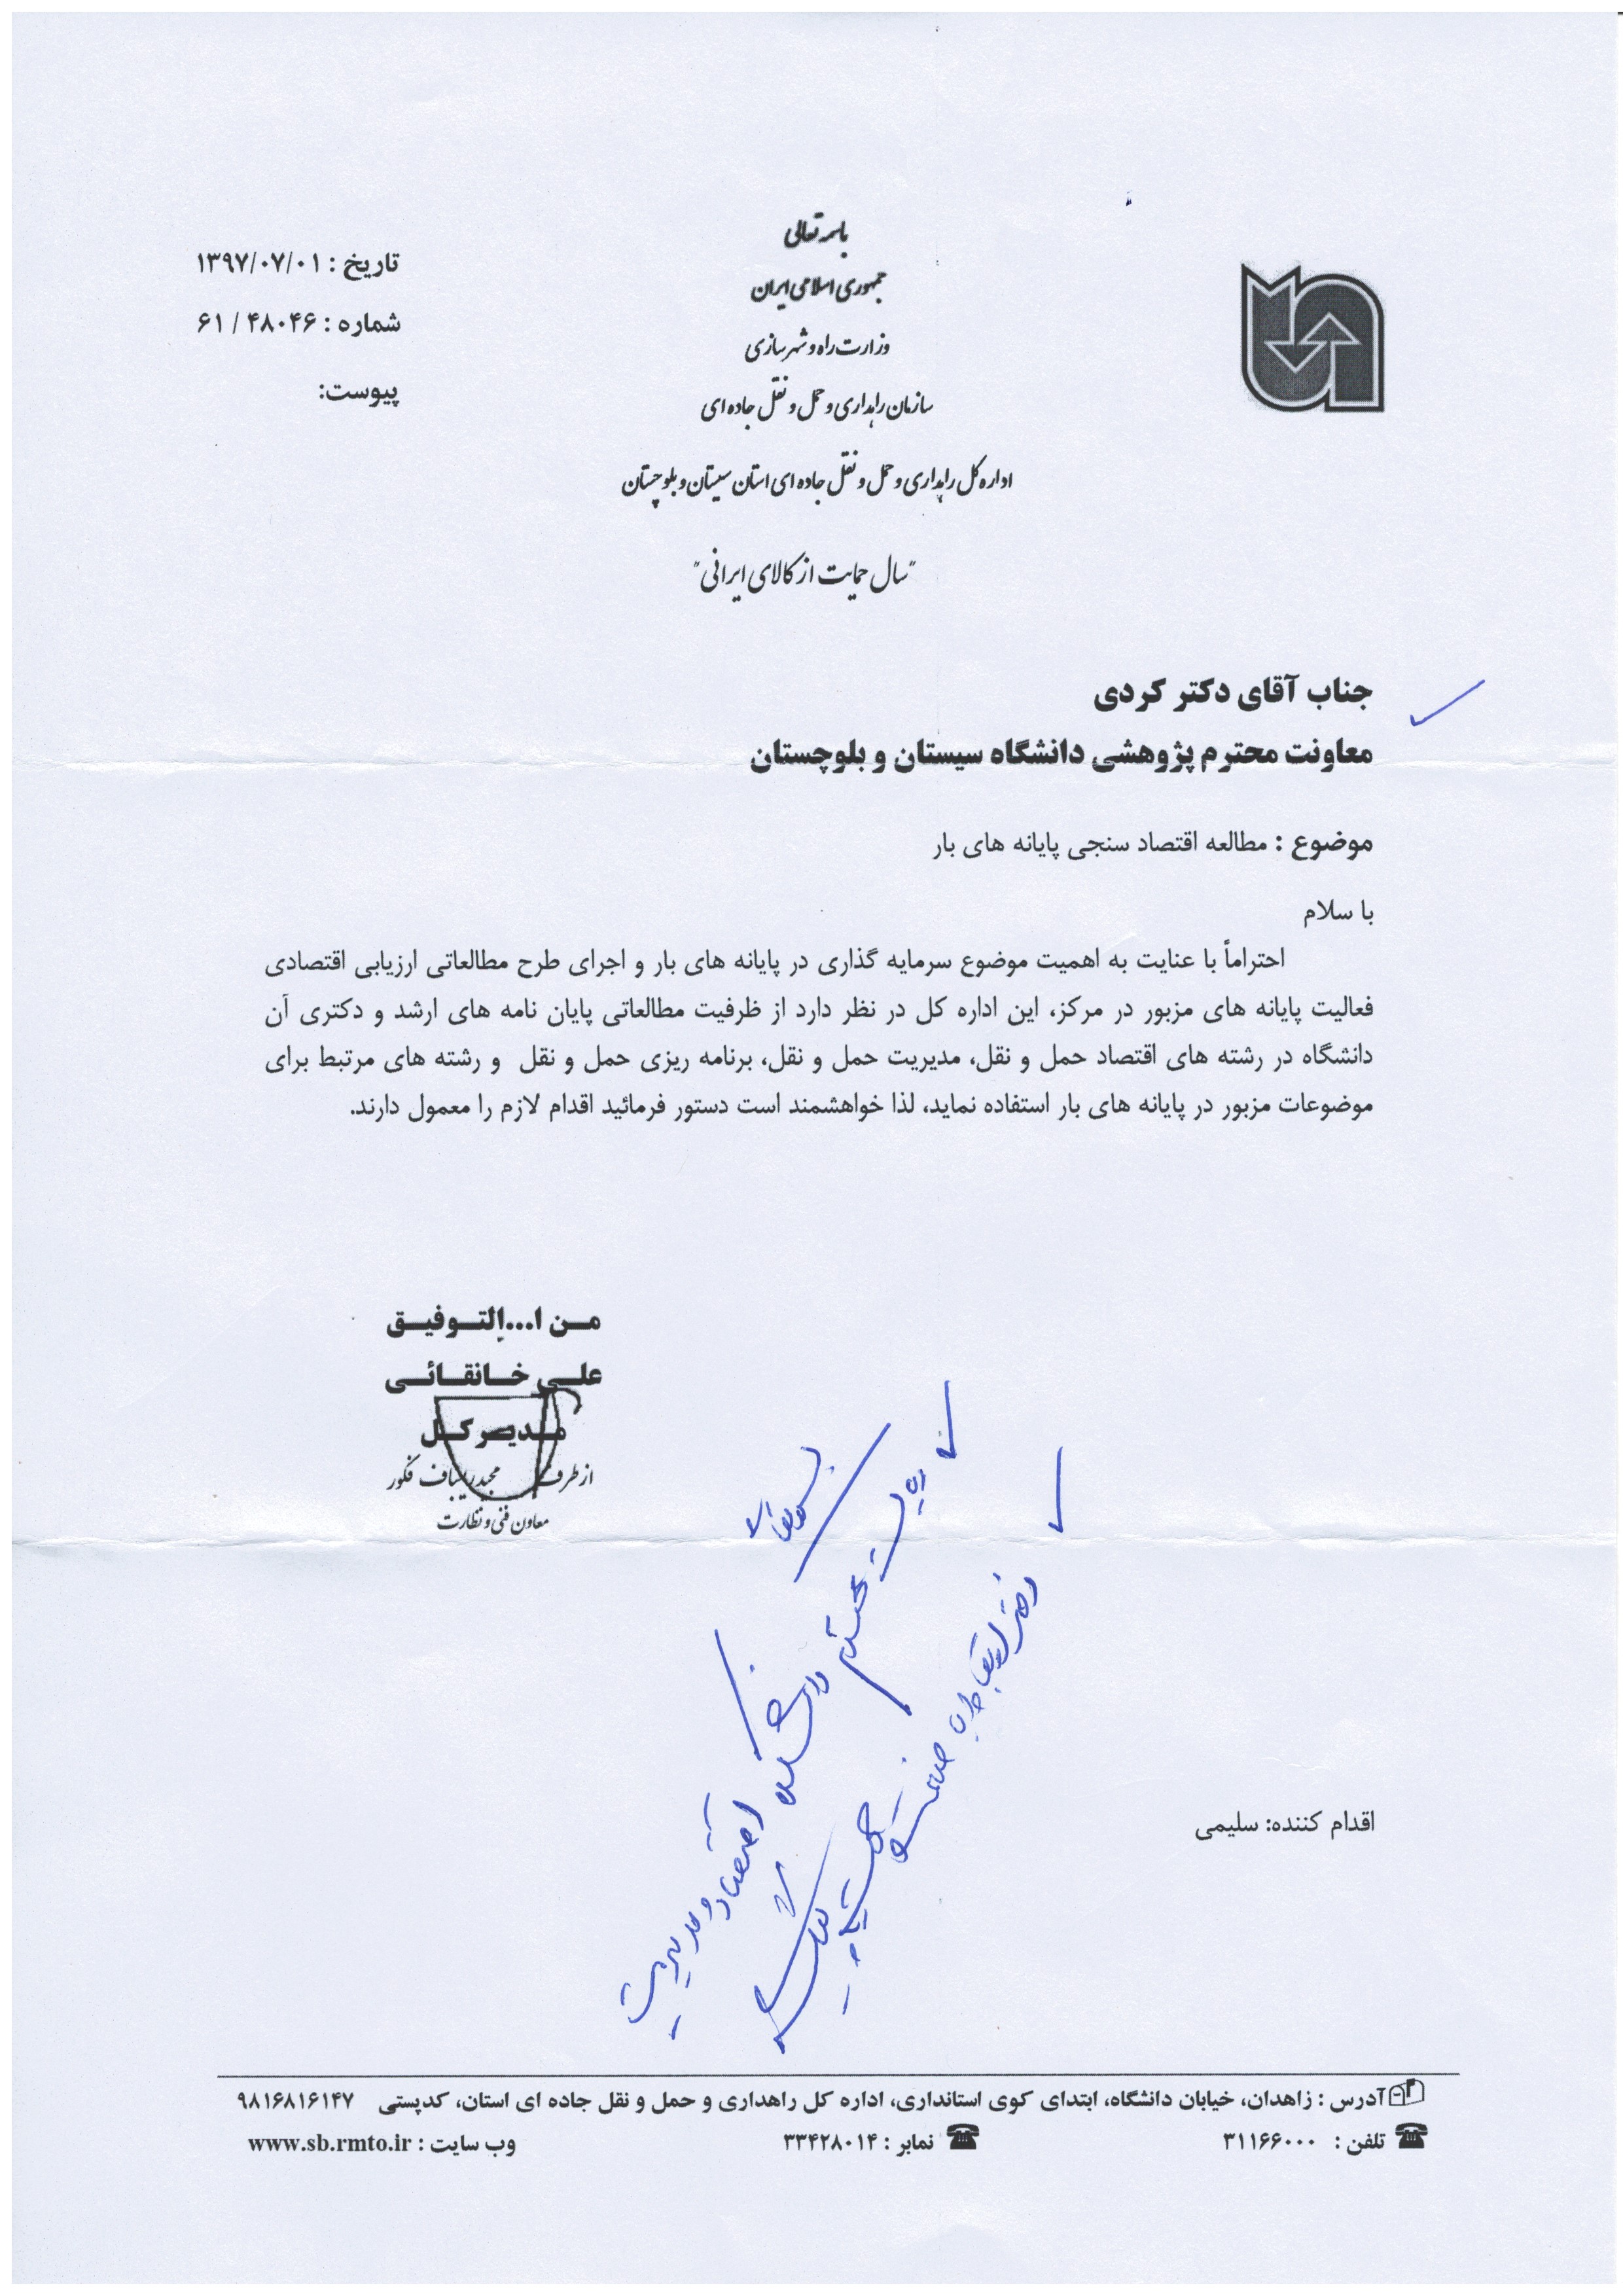 باسمه تعالی
جمهوری اسلامی ایران
وزارت راه و شهرسازی
سازمان راهداری و حمل و نقل جاده ای
اداره کل راهداری و حمل و نقل جاده ای استان سیستان و بلوچستان
"سال حمایت از کالای ایرانی"
تاریخ : ۱۳۹۷/۰۷/۰۱
شماره : ۴۸۰۴۶ / ۶۱
پیوست:
جناب آقای دکتر کردی
معاونت محترم پژوهشی دانشگاه سیستان و بلوچستان
موضوع : مطالعه اقتصاد سنجی پایانه های بار
با سلام
احتراماً با عنایت به اهمیت موضوع سرمایه گذاری در پایانه های بار و اجرای طرح مطالعاتی ارزیابی اقتصادی
فعالیت پایانه های مزبور در مرکز، این اداره کل در نظر دارد از ظرفیت مطالعاتی پایان نامه های ارشد و دکتری آن
دانشگاه در رشته های اقتصاد حمل و نقل، مدیریت حمل و نقل، برنامه ریزی حمل و نقل و رشته های مرتبط برای
موضوعات مزبور در پایانه های بار استفاده نماید، لذا خواهشمند است دستور فرمائید اقدام لازم را معمول دارند.
مـن ا...التـوفیـق
علـی خـانقـائـی
مـدیـر کـل
از طرف مجید ریسباف فکور
معاون فنی و نظارت
بسمه تعالی
ریاست محترم دانشکده اقتصاد و مدیریت
دفتر ارتباط با صنعت
اقدام کننده: سلیمی
آدرس : زاهدان، خیابان دانشگاه، ابتدای کوی استانداری، اداره کل راهداری و حمل و نقل جاده ای استان، کدپستی ۹۸۱۶۸۱۶۱۴۷
تلفن : ۳۱۱۶۶۰۰۰ نمابر : ۳۳۴۲۸۰۱۴ وب سایت : www.sb.rmto.ir